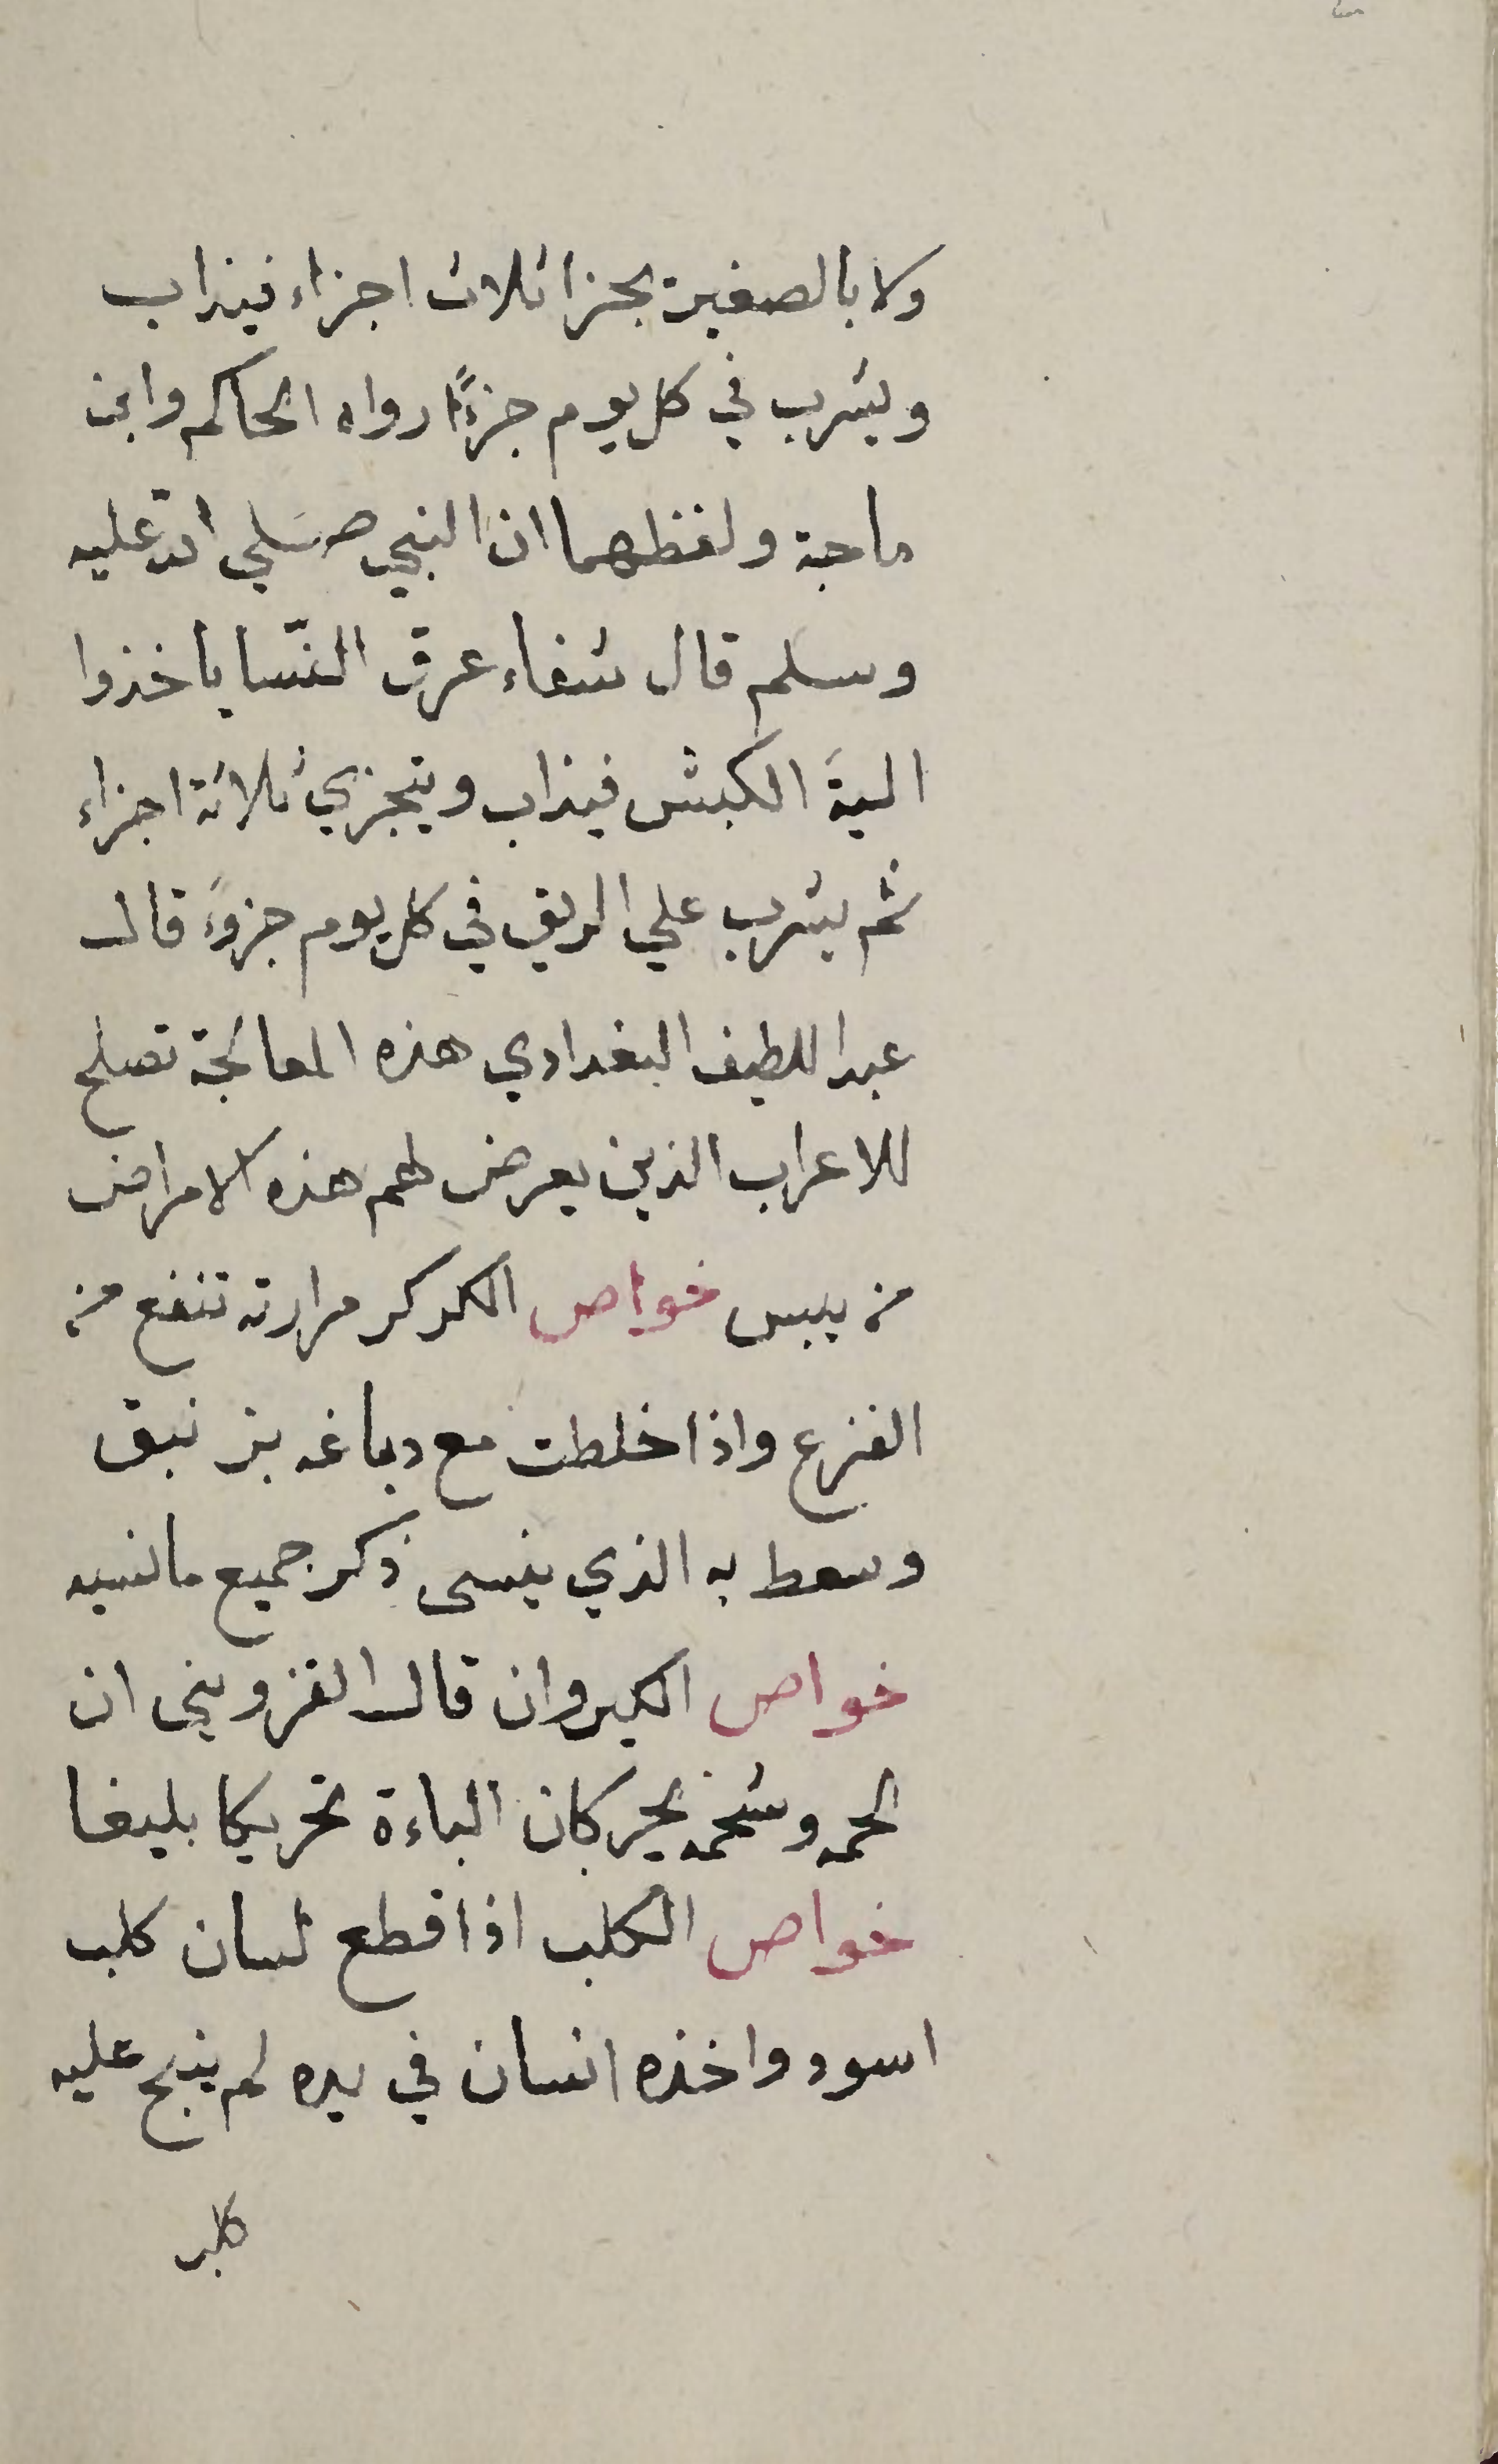 ولا بالصغيرة يجزا ثلاث اجزاء فيذاب
ويشرب في كل يوم جزءًا رواه الحاكم وابن
ماجة ولفظهما ان النبي صَلي الله عليه
وسلم قال شفاء عرق النّسا ياخذوا
اليةَ الكبش فيذاب ويتجزي ثلاثة اجزاء
ثم يشرب علي الريق في كل يوم جزوً قال
عبد اللطيف البغدادي هذه المعالجة تصلح
للاعراب الذين يعرض لهم هذه الامراض
من يبس خواص الكركر مرارته تنفع من
الفزع واذا خلطت مع دماغه بزنبق
وسعط به الذي ينسى ذكر جميع ما نسيه
خواص الكيروان قال القزويني ان
لحمه وشحمه يحركان الباءة تحريكا بليغا
خواص الكلب اذا قطع لسان كلب
اسود واخذه انسان في يده لم ينبح عليه
كلب